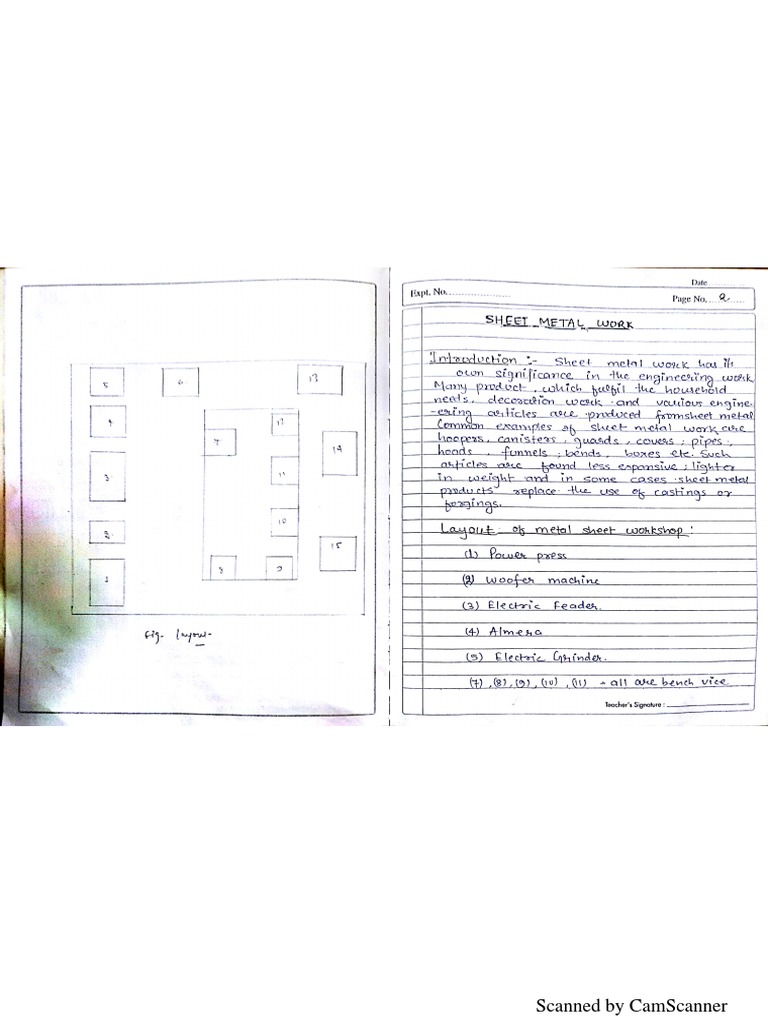 5
6
13
4
12
7
14
3
11
10
2
15
8
9
1
fig. layout
Date
Expt. No.
Page No. 2
SHEET METAL WORK
Introduction :- Sheet metal work has its
own significance in the engineering work
Many product, which fulfil the household
needs, decoration work and various engine-
-ering articles are produced fromsheet metal
Common examples of sheet metal work are
hoopers, canisters, guards, covers, pipes,
hoods, funnels, bends, boxes etc. Such
articles are found less expansive, lighter
in weight and in some cases sheet metal
products replace the use of castings or
forgings.
Layout of metal sheet workshop:
(1) Power press
(2) Woofer machine
(3) Electric Feader.
(4) Almera
(5) Electric Grinder.
(7), (8), (9), (10), (11) - all are bench vice
Teacher's Signature :
Scanned by CamScanner